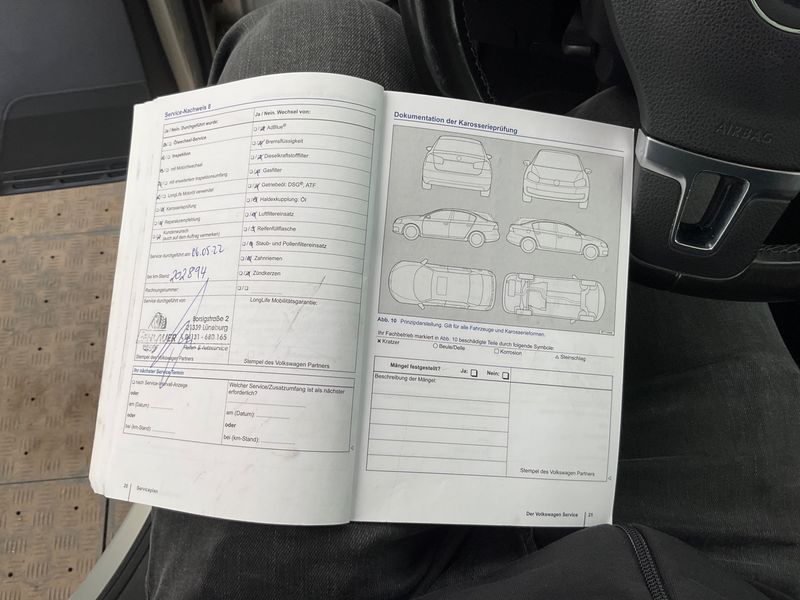 Service-Nachweis 8
Ja / Nein. Durchgeführt wurde:
Ölwechsel-Service
Inspektion
mit Motorölwechsel
mit erweitertem Inspektionsumfang
LongLife Motoröl verwendet
Karosserieprüfung
Reparaturempfehlung
Kundenwunsch
(auch auf dem Auftrag vermerken)
Service durchgeführt am: 06.05.22
bei km-Stand: 202894
Rechnungsnummer:
Service durchgeführt von:
Borsigstraße 2
21339 Lüneburg
680 165
Reifen & Autoservice
Stempel des Volkswagen Partners
Ja / Nein. Wechsel von:
AdBlue®
Bremsflüssigkeit
Dieselkraftstofffilter
Gasfilter
Getriebeöl: DSG®, ATF
Haldexkupplung: Öl
Luftfiltereinsatz
Reifenfüllflasche
Staub- und Pollenfiltereinsatz
Zahnriemen
Zündkerzen
/
LongLife Mobilitätsgarantie:
Stempel des Volkswagen Partners
Ihr nächster Service-Termin
nach Service-Intervall-Anzeige
oder
am (Datum):
oder
bei (km-Stand):
Welcher Service/Zusatzumfang ist als nächster
erforderlich?
am (Datum):
oder
bei (km-Stand):
20 Serviceplan
Dokumentation der Karosserieprüfung
Abb. 10 Prinzipdarstellung. Gilt für alle Fahrzeuge und Karosserieformen.
Ihr Fachbetrieb markiert in Abb. 10 beschädigte Teile durch folgende Symbole:
× Kratzer ○ Beule/Delle □ Korrosion △ Steinschlag
Mängel festgestellt? Ja: □ Nein: □
Beschreibung der Mängel:
Stempel des Volkswagen Partners
Der Volkswagen Service 21
AIRBAG